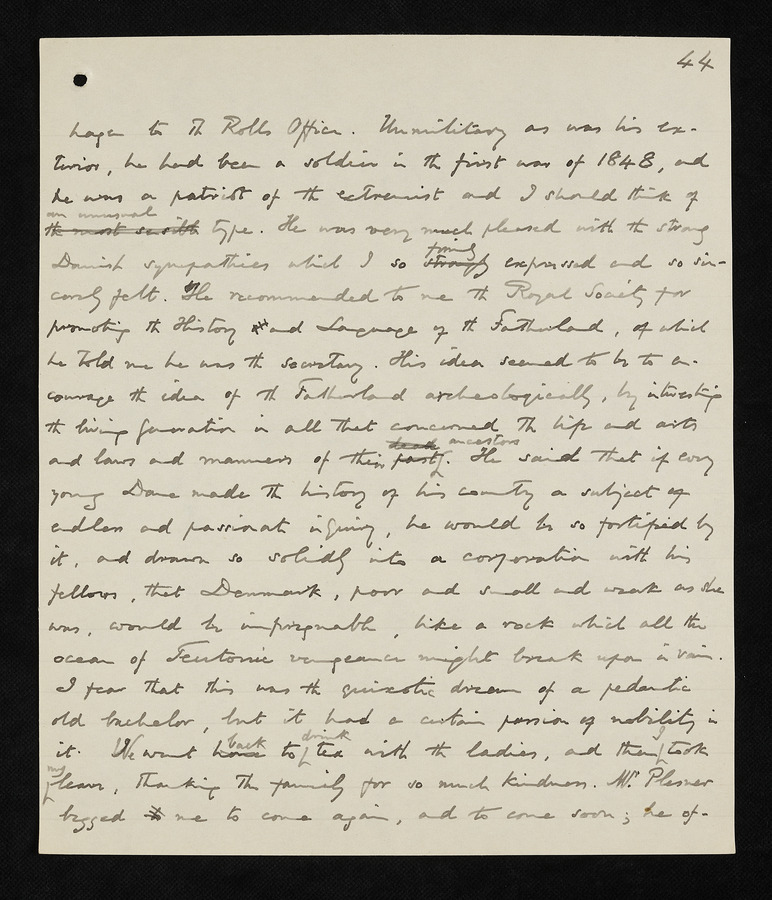 44
hagen to th Rolls Office. Unmilitary as was his ex-
terior, he had been a soldier in th first war of 1848, and
he was a patriot of th extremist and I should think of
an unusual
th most sensible type. He was very much pleased with th strong
firmly
Danish sympathies which I so strongly expressed and so sin-
cerely felt. He recommended to me th Royal Society for
promoting th History and Language of th Fatherland, of which
he told me he was th secretary. His idea seemed to be to en-
courage th idea of th Fatherland archeologically, by interesting
th living generation in all that concerned th life and arts
dead ancestors
and laws and manners of their past. He said that if every
young Dane made th history of his country a subject of
endless and passionate inquiry, he would be so fortified by
it, and drawn so solidly into a corporation with his
fellows, that Denmark, poor and small and weak as she
was, would be impregnable, like a rock which all the
ocean of Teutonic vengeance might break upon in vain.
I fear that this was th quixotic dream of a pedantic
old bachelor, but it had a certain passion of nobility in
back drink I
it. We went home to tea with th ladies, and then took
my
leave, thanking th family for so much kindness. Mr. Plesner
begged to me to come again, and to come soon; he of-